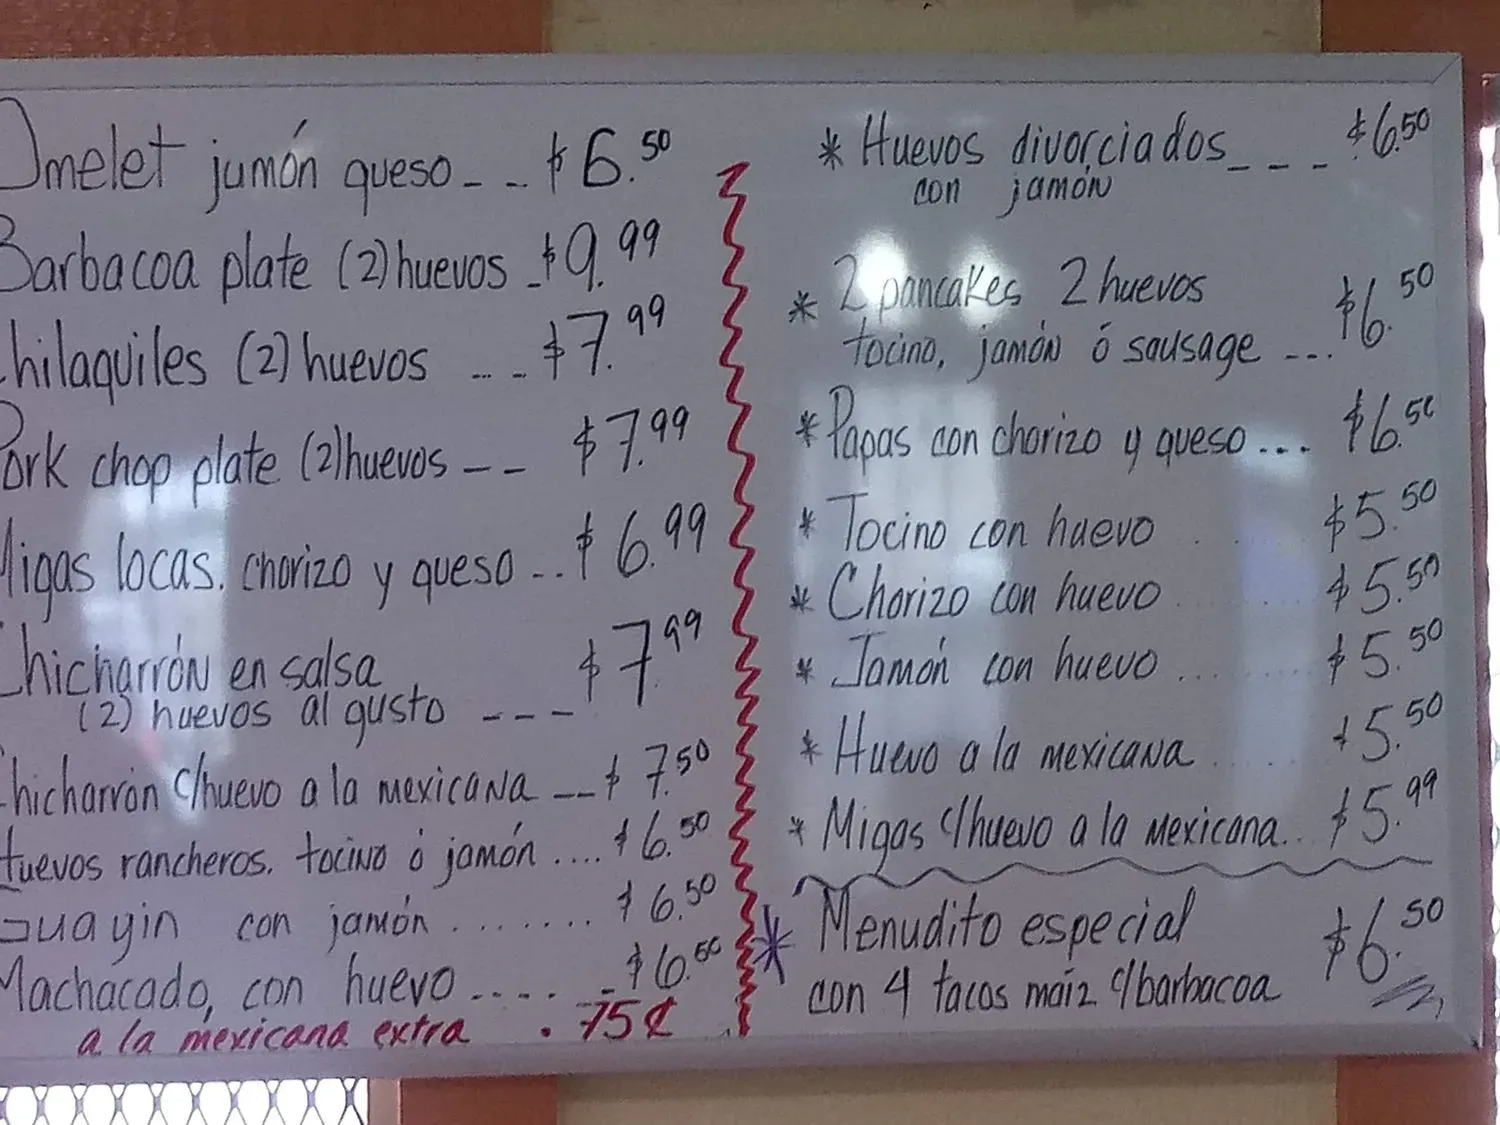 Omelet jumón queso _ _ $6.50
Barbacoa plate (2) huevos _ $9.99
hilaquiles (2) huevos ... _ $7.99
Pork chop plate (2) huevos _ _ $7.99
Migas locas. chorizo y queso .. $6.99
Chicharrón en salsa
(2) huevos al gusto _ _ _ $7.99
hicharrón c/huevo a la mexicana _ _ $7.50
Huevos rancheros. tocino ó jamón .... $6.50
Guayin con jamón ....... $6.50
Machacado, con huevo ..... $6.50
a la mexicana extra . .75¢
* Huevos divorciados _ _ _ $6.50
con jamón
* 2 pancakes 2 huevos
tocino, jamón ó sausage ... $6.50
* Papas con chorizo y queso ... $6.50
* Tocino con huevo ..... $5.50
* Chorizo con huevo ..... $5.50
* Jamón con huevo ..... $5.50
* Huevo a la mexicana ..... $5.50
* Migas c/huevo a la mexicana.. $5.99
* Menudito especial $6.50
con 4 tacos maíz c/barbacoa